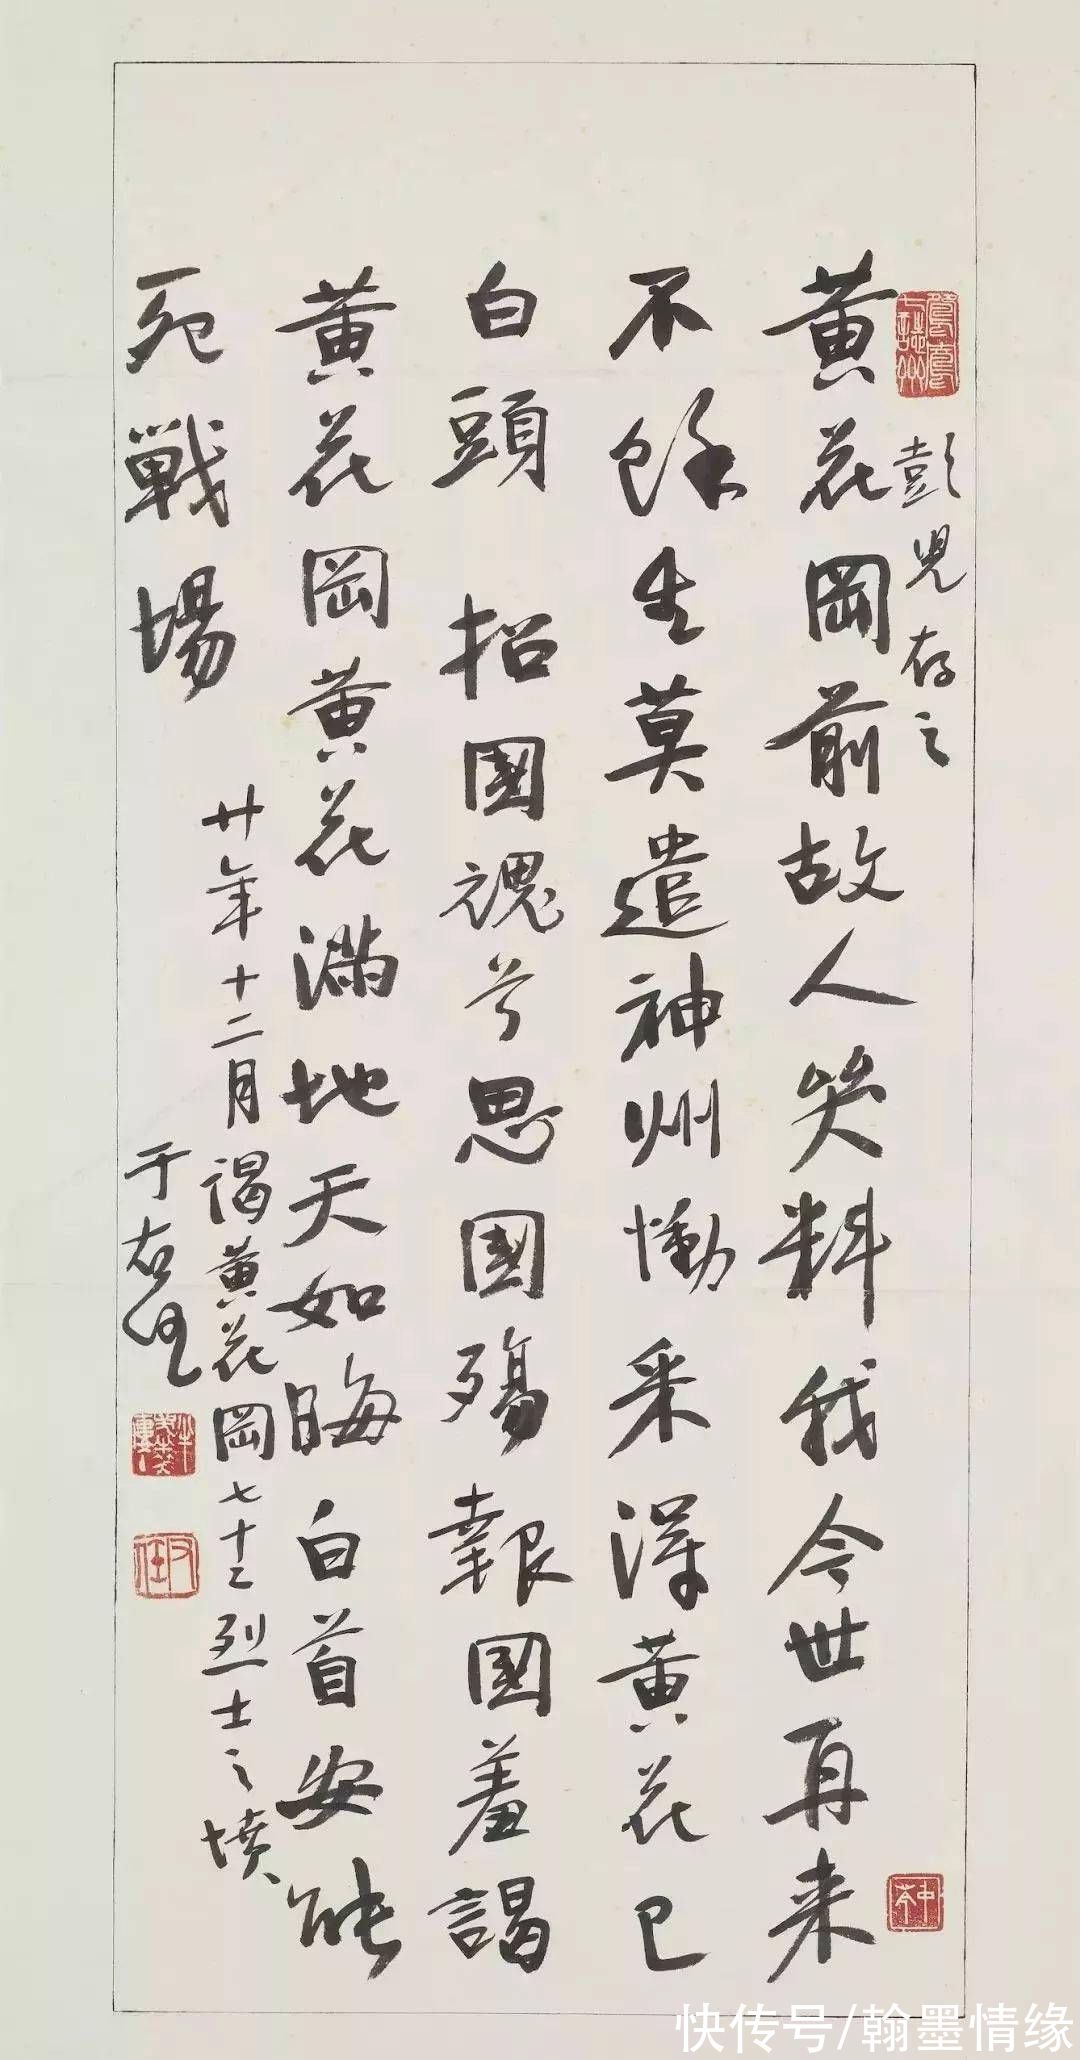 彭兒存之
黄花岡前故人笑料我今世再来
不餘生莫遣神州慟采得黄花已
白頭 招國魂兮思國殤報國羞謁
黄花岡黄花滿地天如晦白首安能
死戰場
廿年十二月謁黄花岡七十二烈士之墳
于右任
右任
快传号/翰墨情缘